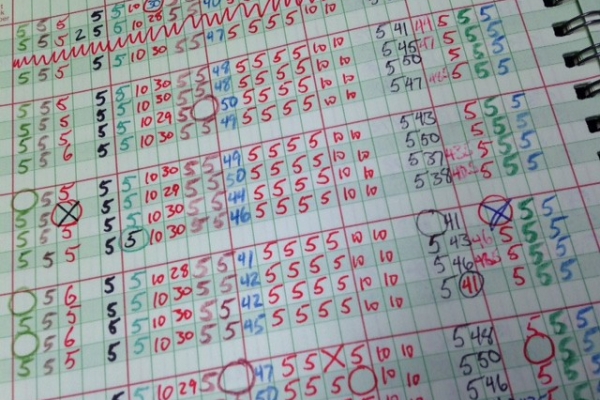 5 5 5 2 5 5 10 28 5 5
5 5 5 5 5 10 30 5 5 47 5 5 5 5 10 10
5 5 5 5 5 10 30 5 5 48 5 5 5 5 10 10 5 41 44 5 5 5
5 5 5 5 5 10 30 5 5 48 5 5 5 5 10 10 5 45 47 5 5 5
5 5 5 5 5 10 29 5 50 5 5 5 5 10 10 5 50 5 5 5
5 5 6 5 5 10 30 5 5 49 5 5 5 5 10 10 5 47 5 5 5
5 5 5 5 10 30 5 5 49 5 5 5 5 10 10 5 43 5 5 5
5 5 X 5 5 10 29 5 5 50 5 5 5 5 10 10 5 50 5 5 5
5 5 5 5 5 10 30 5 5 44 5 5 5 5 10 10 5 37 5 5 5
5 5 5 5 5 10 30 5 5 46 5 5 5 5 10 10 5 38 5 5 5
5 6 5 5 10 28 5 5 41 5 5 5 5 10 10 41 X 5 5
5 5 5 5 5 10 30 5 5 42 5 5 5 5 10 10 5 43 46 5 5 5
5 5 5 5 10 30 5 5 42 5 5 5 5 10 10 5 46 5 5 5
5 5 5 5 5 10 30 5 5 45 5 5 5 5 10 10 5 41 5 5 5
5 10 29 5 47 5 5 X 5 10 10 5 48 5 5 5
50 5 5 5 10 10 5 50 5 5
5 46 5 5 5